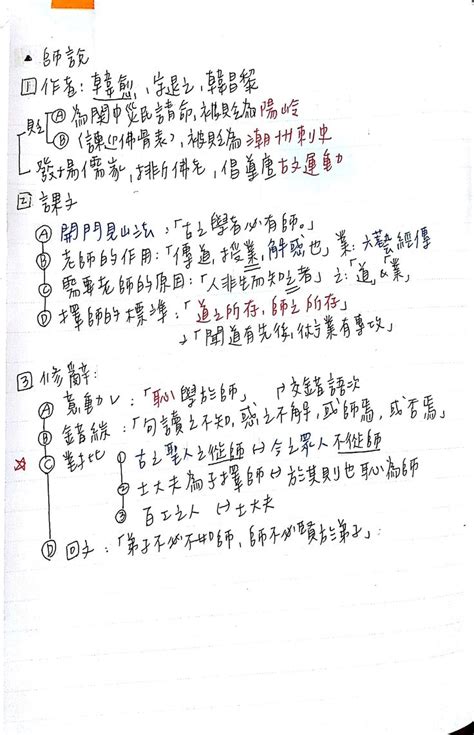 ▲ 師說
1 作者:韓愈,字退之,韓昌黎
貶 A 為關中災民請命,被貶為陽岭
B 〈諫迎佛骨表〉,被貶為潮州刺史
發揚儒家,排斥佛老,倡導唐古文運動
2 課文
A 開門見山法:「古之學者必有師。」
B 老師的作用:「傳道,授業,解惑也」業:六藝經傳
C 需要老師的原因:「人非生而知之者」之:「道」&「業」
D 擇師的標準:「道之所存,師之所存」
→「聞道有先後,術業有專攻」
3 修辭:
A 意動ㄥ:「恥學於師」 交錯語次
B 錯綜:「句讀之不知,惑之不解,或師焉,或否焉」
☆ C 對比 1 古之聖人之從師↔今之眾人不從師
2 士大夫為子擇師↔於其則也恥為師
3 百工之人 ↔士大夫
D 回文:「弟子不必不如師,師不必賢於弟子」: